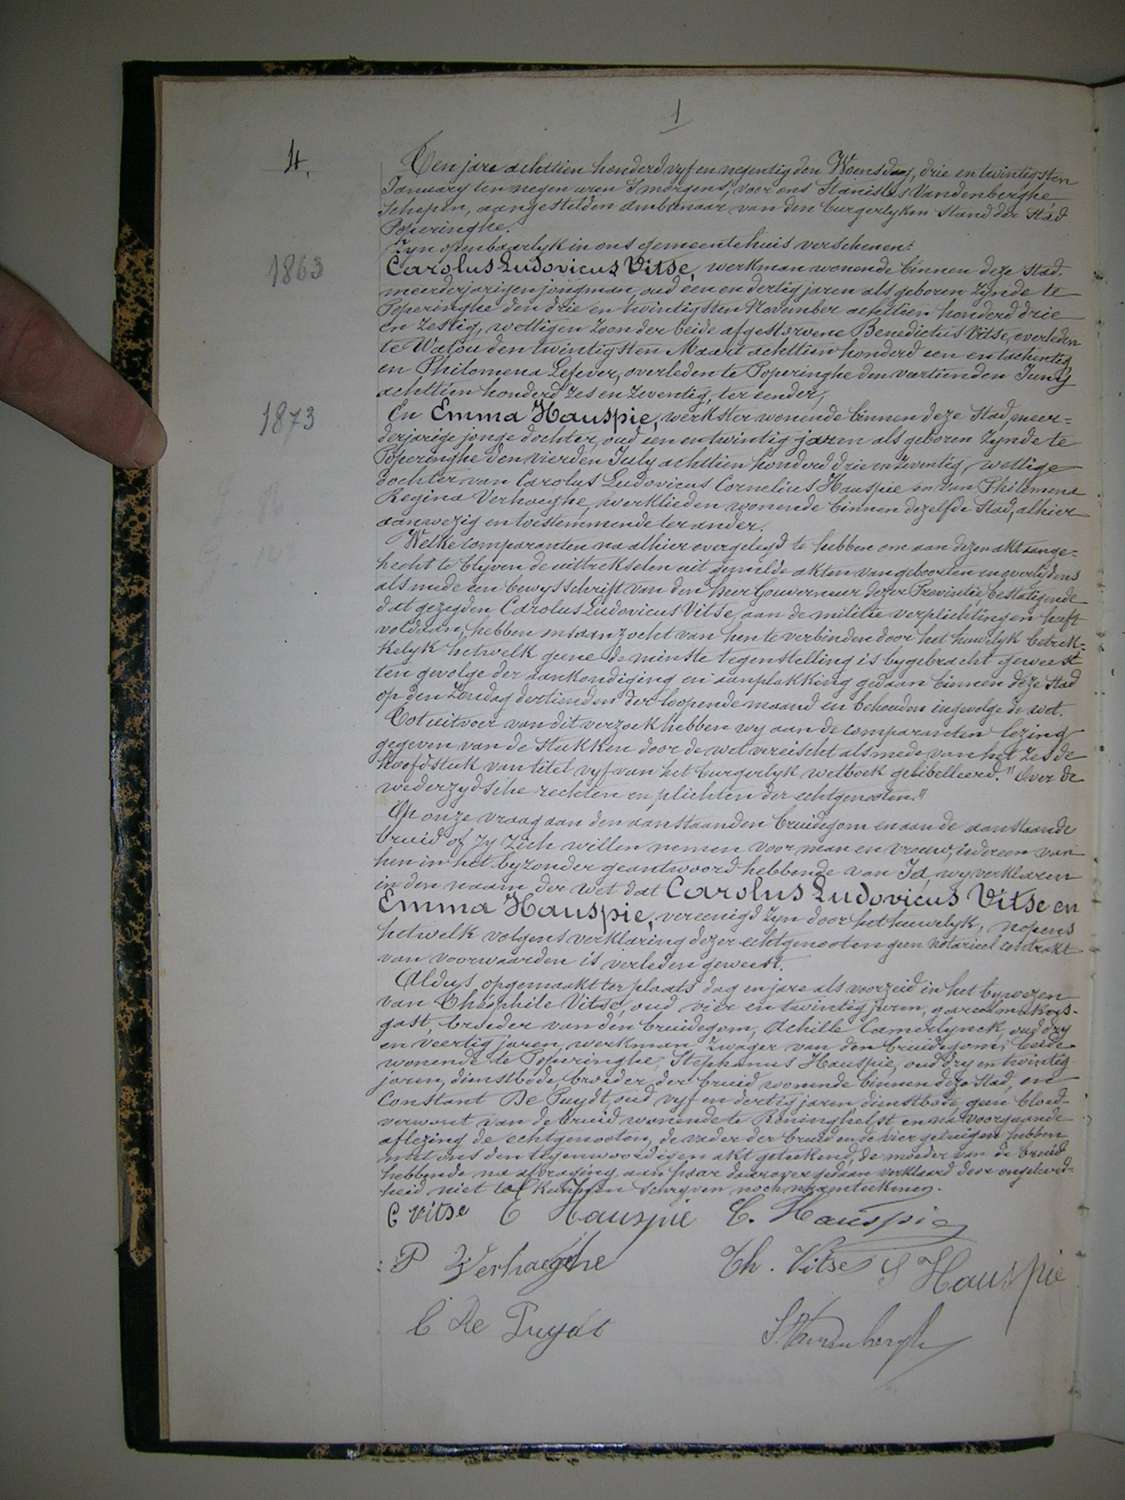 1
4.
Ten jare achttien honderd vyf en negentig den Woensdag, drie en twintigsten
January ten negen uren 's morgens, voor ons Stanislas Vandenberghe
Schepen, aangestelden ambtenaar van den burgerlyken stand der Stad
Poperinghe.
Zyn openbaarlyk in ons gemeentehuis verschenen:
1863
Carolus Ludovicus Vitse, werkman wonende binnen deze stad
meerderjarigen jongman, oud een en dertig jaren als geboren zynde te
Poperinghe den drie en twintigsten November achttien honderd drie
en zestig, wettigen zoon der beide afgestorvene Benedictus Vitse, overleden
te Watou den twintigsten Maart achttien honderd een en tachentig
en Philomena Lefever, overleden te Poperinghe den veertienden Juny
achttien honderd zes en zeventig, ter eender,
1873
En Emma Hauspie, werkster wonende binnen deze Stad, meer-
derjarige jonge dochter, oud een en twintig jaren als geboren zynde te
Poperinghe den vierden July achttien honderd drie en zeventig, wettige
dochter van Carolus Ludovicus Cornelius Hauspie en van Philomena
Regina Verhaeghe, werklieden wonende binnen dezelfde Stad, alhier
aanwezig en toestemmende ter ander.
Welke comparanten na alhier overgelegd te hebben om aan dezen akt aange-
hecht te blyven de uittrekselen uit gemelde akten van geboorten en overlydens
alsmede een bewysschrift van den heer Gouverneur dezer Provintie, bestatigende
dat gezegden Carolus Ludovicus Vitse aan de militie verplichtingen heeft
voldaan, hebben ons aanzocht van hen te verbinden door het huwelyk betrek-
kelyk hetwelk geene de minste tegenstelling is bygebracht geweest
ten gevolge der aankondiging en aanplakking gedaan binnen deze Stad
op den Zondag dertienden der loopende maand en behoudens ingevolge de wet.
Tot uitvoer van dit verzoek hebben wy aan de comparanten lezing
gegeven van de stukken door de wet vereischt alsmede van het zesde
hoofdstuk van titel vyf van het burgerlyk wetboek gelibelleerd: "Over de
wederzydsche rechten en plichten der echtgenooten."
Op onze vraag aan den aanstaanden bruidegom en aan de aanstaande
bruid of zy zich willen nemen voor man en vrouw, iedereen van
hen in het byzonder geantwoord hebbende van Ja, wy verklaren
in den naam der wet dat Carolus Ludovicus Vitse en
Emma Hauspie, vereenigd zyn door het huwelyk, nopens
hetwelk volgens verklaring dezer echtgenooten geen notarieel contrakt
van voorwaarden is verleden geweest.
Aldus opgemaakt ter plaats dag en jare als voorzeid in het bywezen
van Theophile Vitse, oud vier en twintig jaren, gareelmakers-
gast, broeder van den bruidegom, Achille Camerlynck, oud dry
en veertig jaren, werkman zwager van den bruidegom, beide
wonende te Poperinghe, Stephanus Hauspie, oud dry en twintig
jaren, dienstbode, broeder der bruid wonende binnen deze Stad, en
Constant De Puydt, oud vyf en dertig jaren dienstbode, geen bloed-
verwant van de bruid wonende te Reninghelst en na voorgaande
aflezing de echtgenooten, de vader der bruid en de vier getuigen hebben
met ons den tegenwoordigen akt geteekend, de moeder van de bruid
hebbende na afvraging aan haar daarover gedaan verklaard door ongeleerd-
heid niet te kunnen schryven noch naamteekenen.
C Vitse E Hauspie C. Hauspie
P Verhaeghe Th. Vitse S Hauspie
C De Puydt S. Vandenberghe